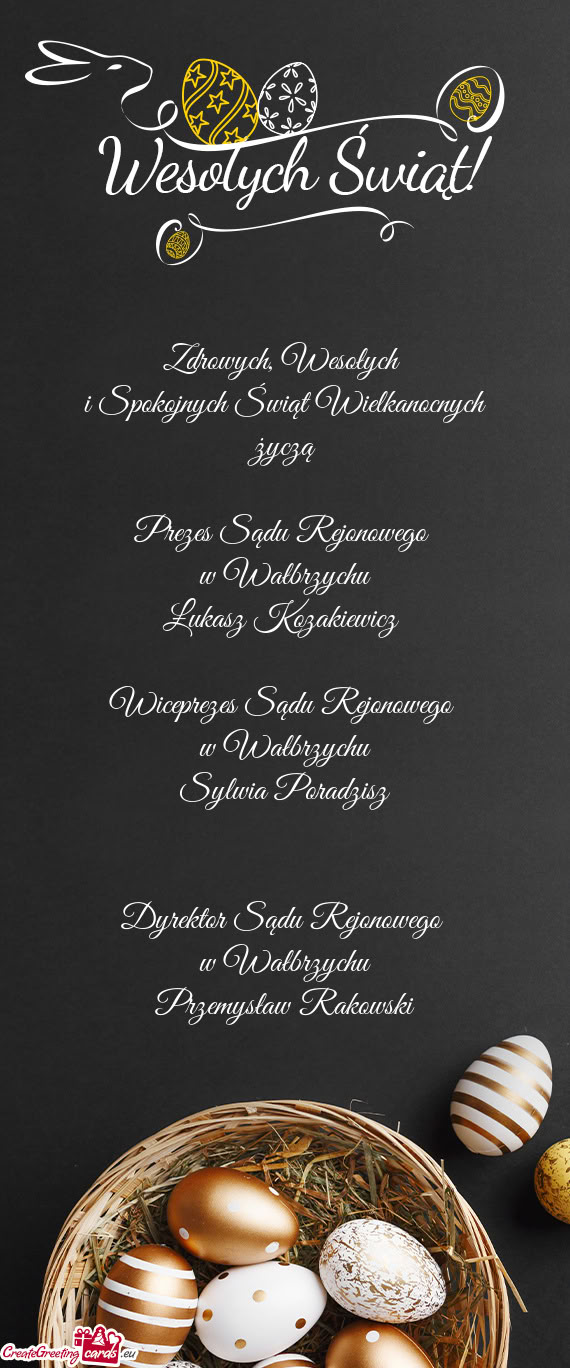 Wesołych Świąt!
Zdrowych, Wesołych
i Spokojnych Świąt Wielkanocnych
życzą
Prezes Sądu Rejonowego
w Wałbrzychu
Łukasz Kozakiewicz
Wiceprezes Sądu Rejonowego
w Wałbrzychu
Sylwia Poradzisz
Dyrektor Sądu Rejonowego
w Wałbrzychu
Przemysław Rakowski
CreateGreeting cards .eu